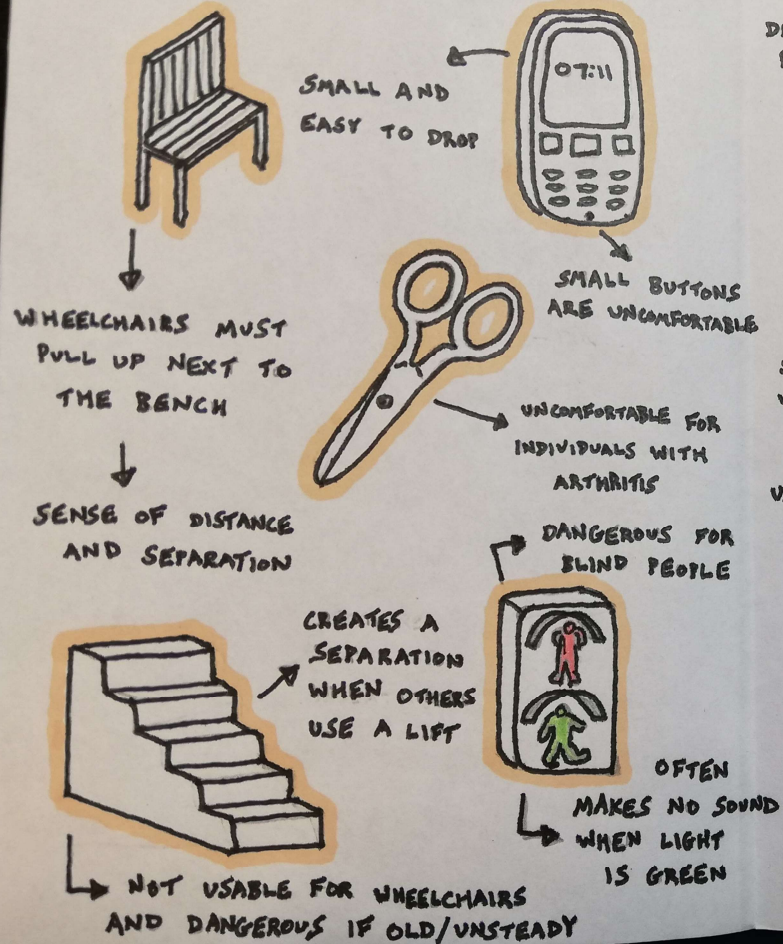 SMALL AND
EASY TO DROP
07:11
SMALL BUTTONS
ARE UNCOMFORTABLE
WHEELCHAIRS MUST
PULL UP NEXT TO
THE BENCH
SENSE OF DISTANCE
AND SEPARATION
UNCOMFORTABLE FOR
INDIVIDUALS WITH
ARTHRITIS
DANGEROUS FOR
BLIND PEOPLE
CREATES A
SEPARATION
WHEN OTHERS
USE A LIFT
OFTEN
MAKES NO SOUND
WHEN LIGHT
IS GREEN
NOT USABLE FOR WHEELCHAIRS
AND DANGEROUS IF OLD/UNSTEADY